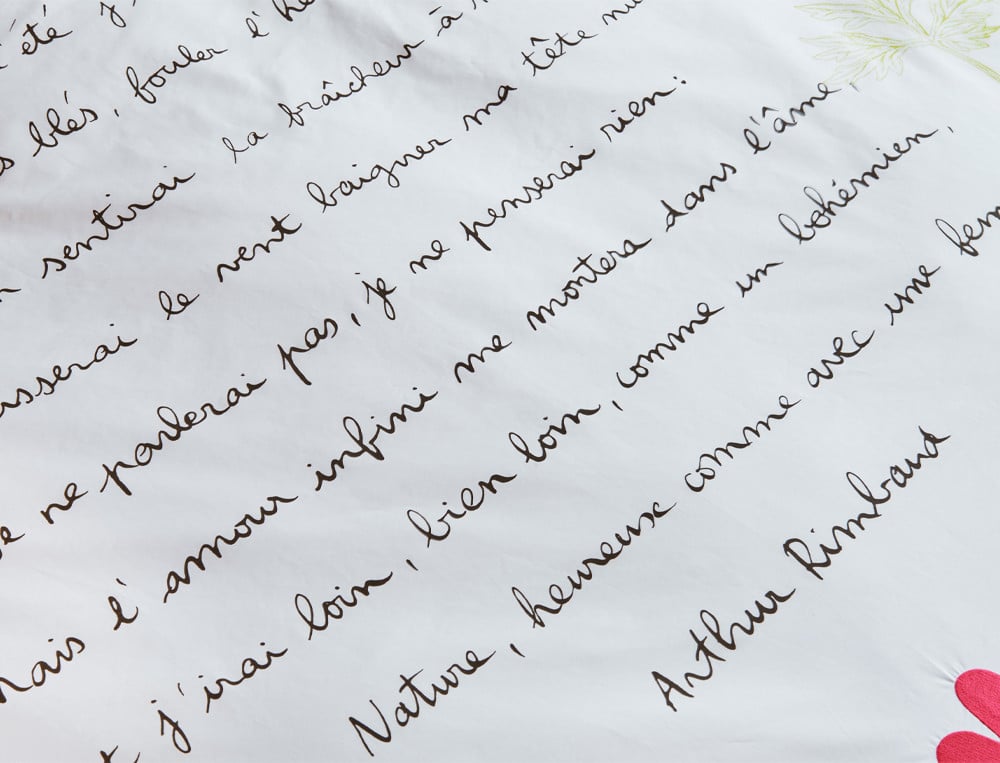 été j'
s blés, fouler l'he
sentirai la fraîcheur à
isserai le vent baigner ma tête nu
e ne parlerai pas, je ne penserai rien :
Mais l'amour infini me montera dans l'âme,
t j'irai loin, bien loin, comme un bohémien,
Nature, heureux comme avec une fem
Arthur Rimbaud